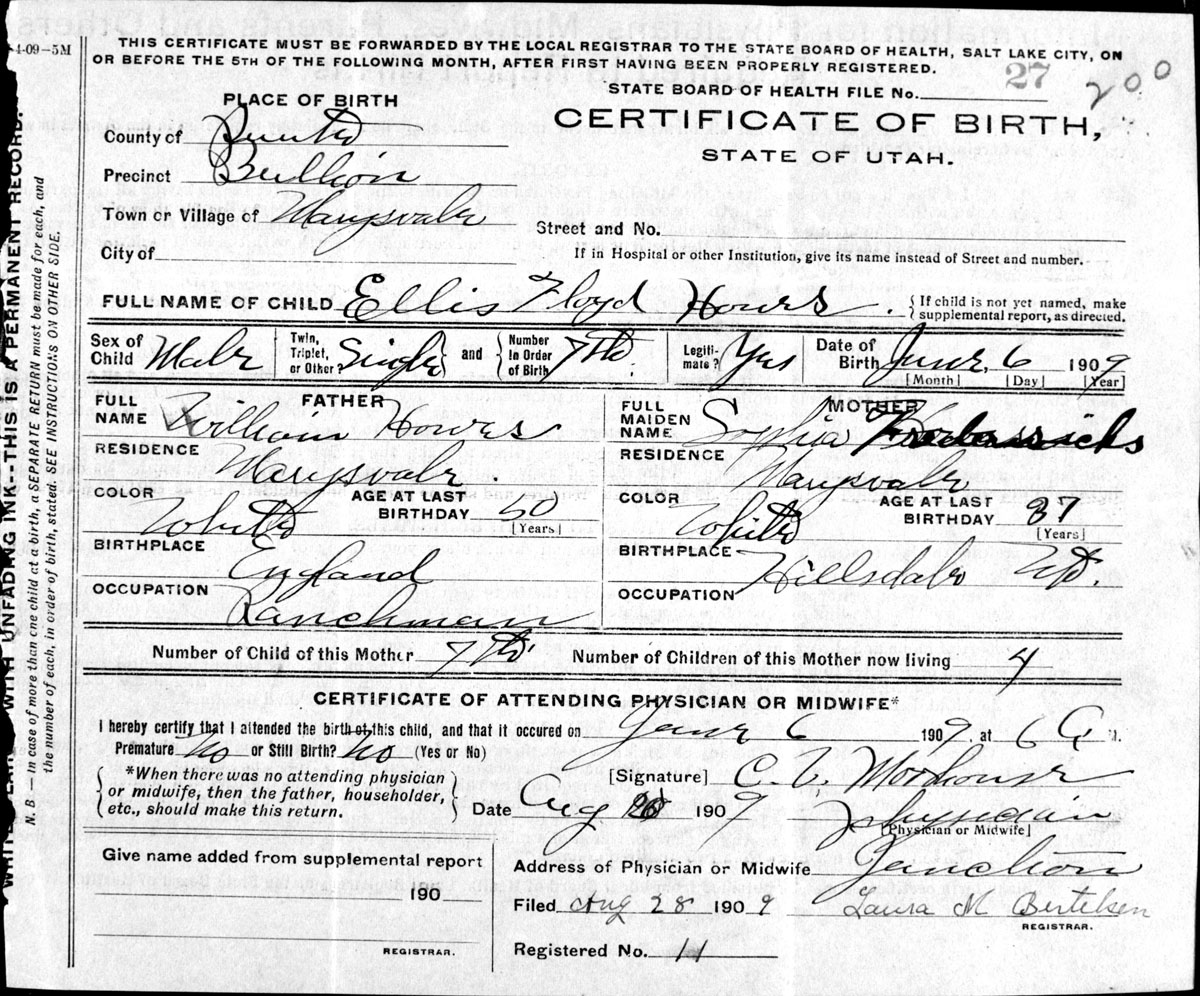 4-09-5M
THIS CERTIFICATE MUST BE FORWARDED BY THE LOCAL REGISTRAR TO THE STATE BOARD OF HEALTH, SALT LAKE CITY, ON
OR BEFORE THE 5TH OF THE FOLLOWING MONTH, AFTER FIRST HAVING BEEN PROPERLY REGISTERED.
STATE BOARD OF HEALTH FILE No. 27 200
PLACE OF BIRTH
CERTIFICATE OF BIRTH,
STATE OF UTAH.
County of Piute
Precinct Bullion
Town or Village of Marysvale
Street and No.
City of
If in Hospital or other Institution, give its name instead of Street and number.
FULL NAME OF CHILD Ellis Floyd Howes . { If child is not yet named, make
supplemental report, as directed.
Sex of Child Male Twin, Triplet, or Other? Single and Number In Order of Birth 7th. Legitimate? Yes Date of Birth June, 6 1909
[Month] [Day] [Year]
FATHER
FULL NAME William Howes
RESIDENCE Marysvale.
COLOR White AGE AT LAST BIRTHDAY 50 [Years]
BIRTHPLACE England
OCCUPATION Ranchman
MOTHER
FULL MAIDEN NAME Sophia
RESIDENCE Marysvale
COLOR White AGE AT LAST BIRTHDAY 37 [Years]
BIRTHPLACE Hillsdale Ut.
OCCUPATION
Number of Child of this Mother 7th Number of Children of this Mother now living 4
CERTIFICATE OF ATTENDING PHYSICIAN OR MIDWIFE*
I hereby certify that I attended the birth of this child, and that it occured on June 6 1909, at 6 A.
Premature No or Still Birth? No (Yes or No)
*When there was no attending physician
or midwife, then the father, householder,
etc., should make this return.
[Signature] C. Moorhouse
Date Aug 1909 Physician
[Physician or Midwife]
Give name added from supplemental report
190
REGISTRAR.
Address of Physician or Midwife Junction
Filed Aug 28 1909 Laura M Bertelsen
REGISTRAR.
Registered No. 11
WITH UNFADING INK--THIS IS A PERMANENT RECORD.
N. B.—In case of more than one child at a birth, a SEPARATE RETURN must be made for each, and
the number of each, in order of birth, stated. SEE INSTRUCTIONS ON OTHER SIDE.